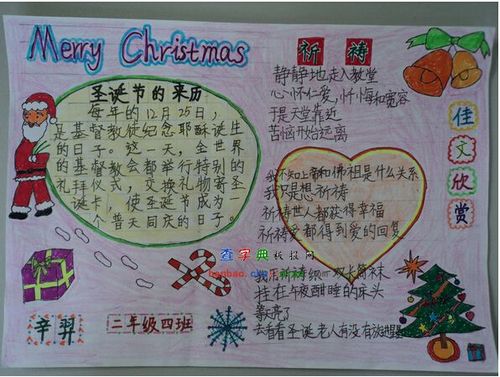 Merry Christmas
圣诞节的来历
每年的12月25日，
是基督教徒纪念耶稣诞生
的日子。这一天，全世界
的基督教会都举行特别的
礼拜仪式，交换礼物寄圣
诞卡，使圣诞节成为一
个普天同庆的日子。
祈祷
静静地走入教堂
心怀仁爱，忏悔和宽容
于是天堂靠近
苦恼开始远离
我不知上帝和佛祖是什么关系
我只是想祈祷
祈祷世人都获得幸福
祈祷爱都得到爱的回复
双大筒袜
挂在午夜酣睡的床头
天亮了
去看看圣诞老人有没有放进
佳文欣赏
辛羿
二年级四班
查字典板报网